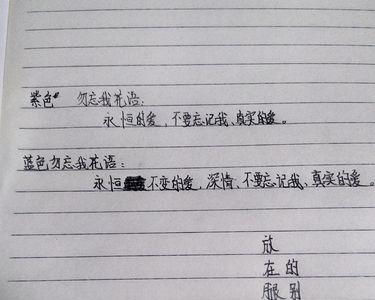 紫色 勿忘我花语:
永恒的爱,不要忘记我、真实的爱。
蓝色勿忘我花语:
永恒不变的爱,深情、不要忘记我、真实的爱。
放
在的
眼别